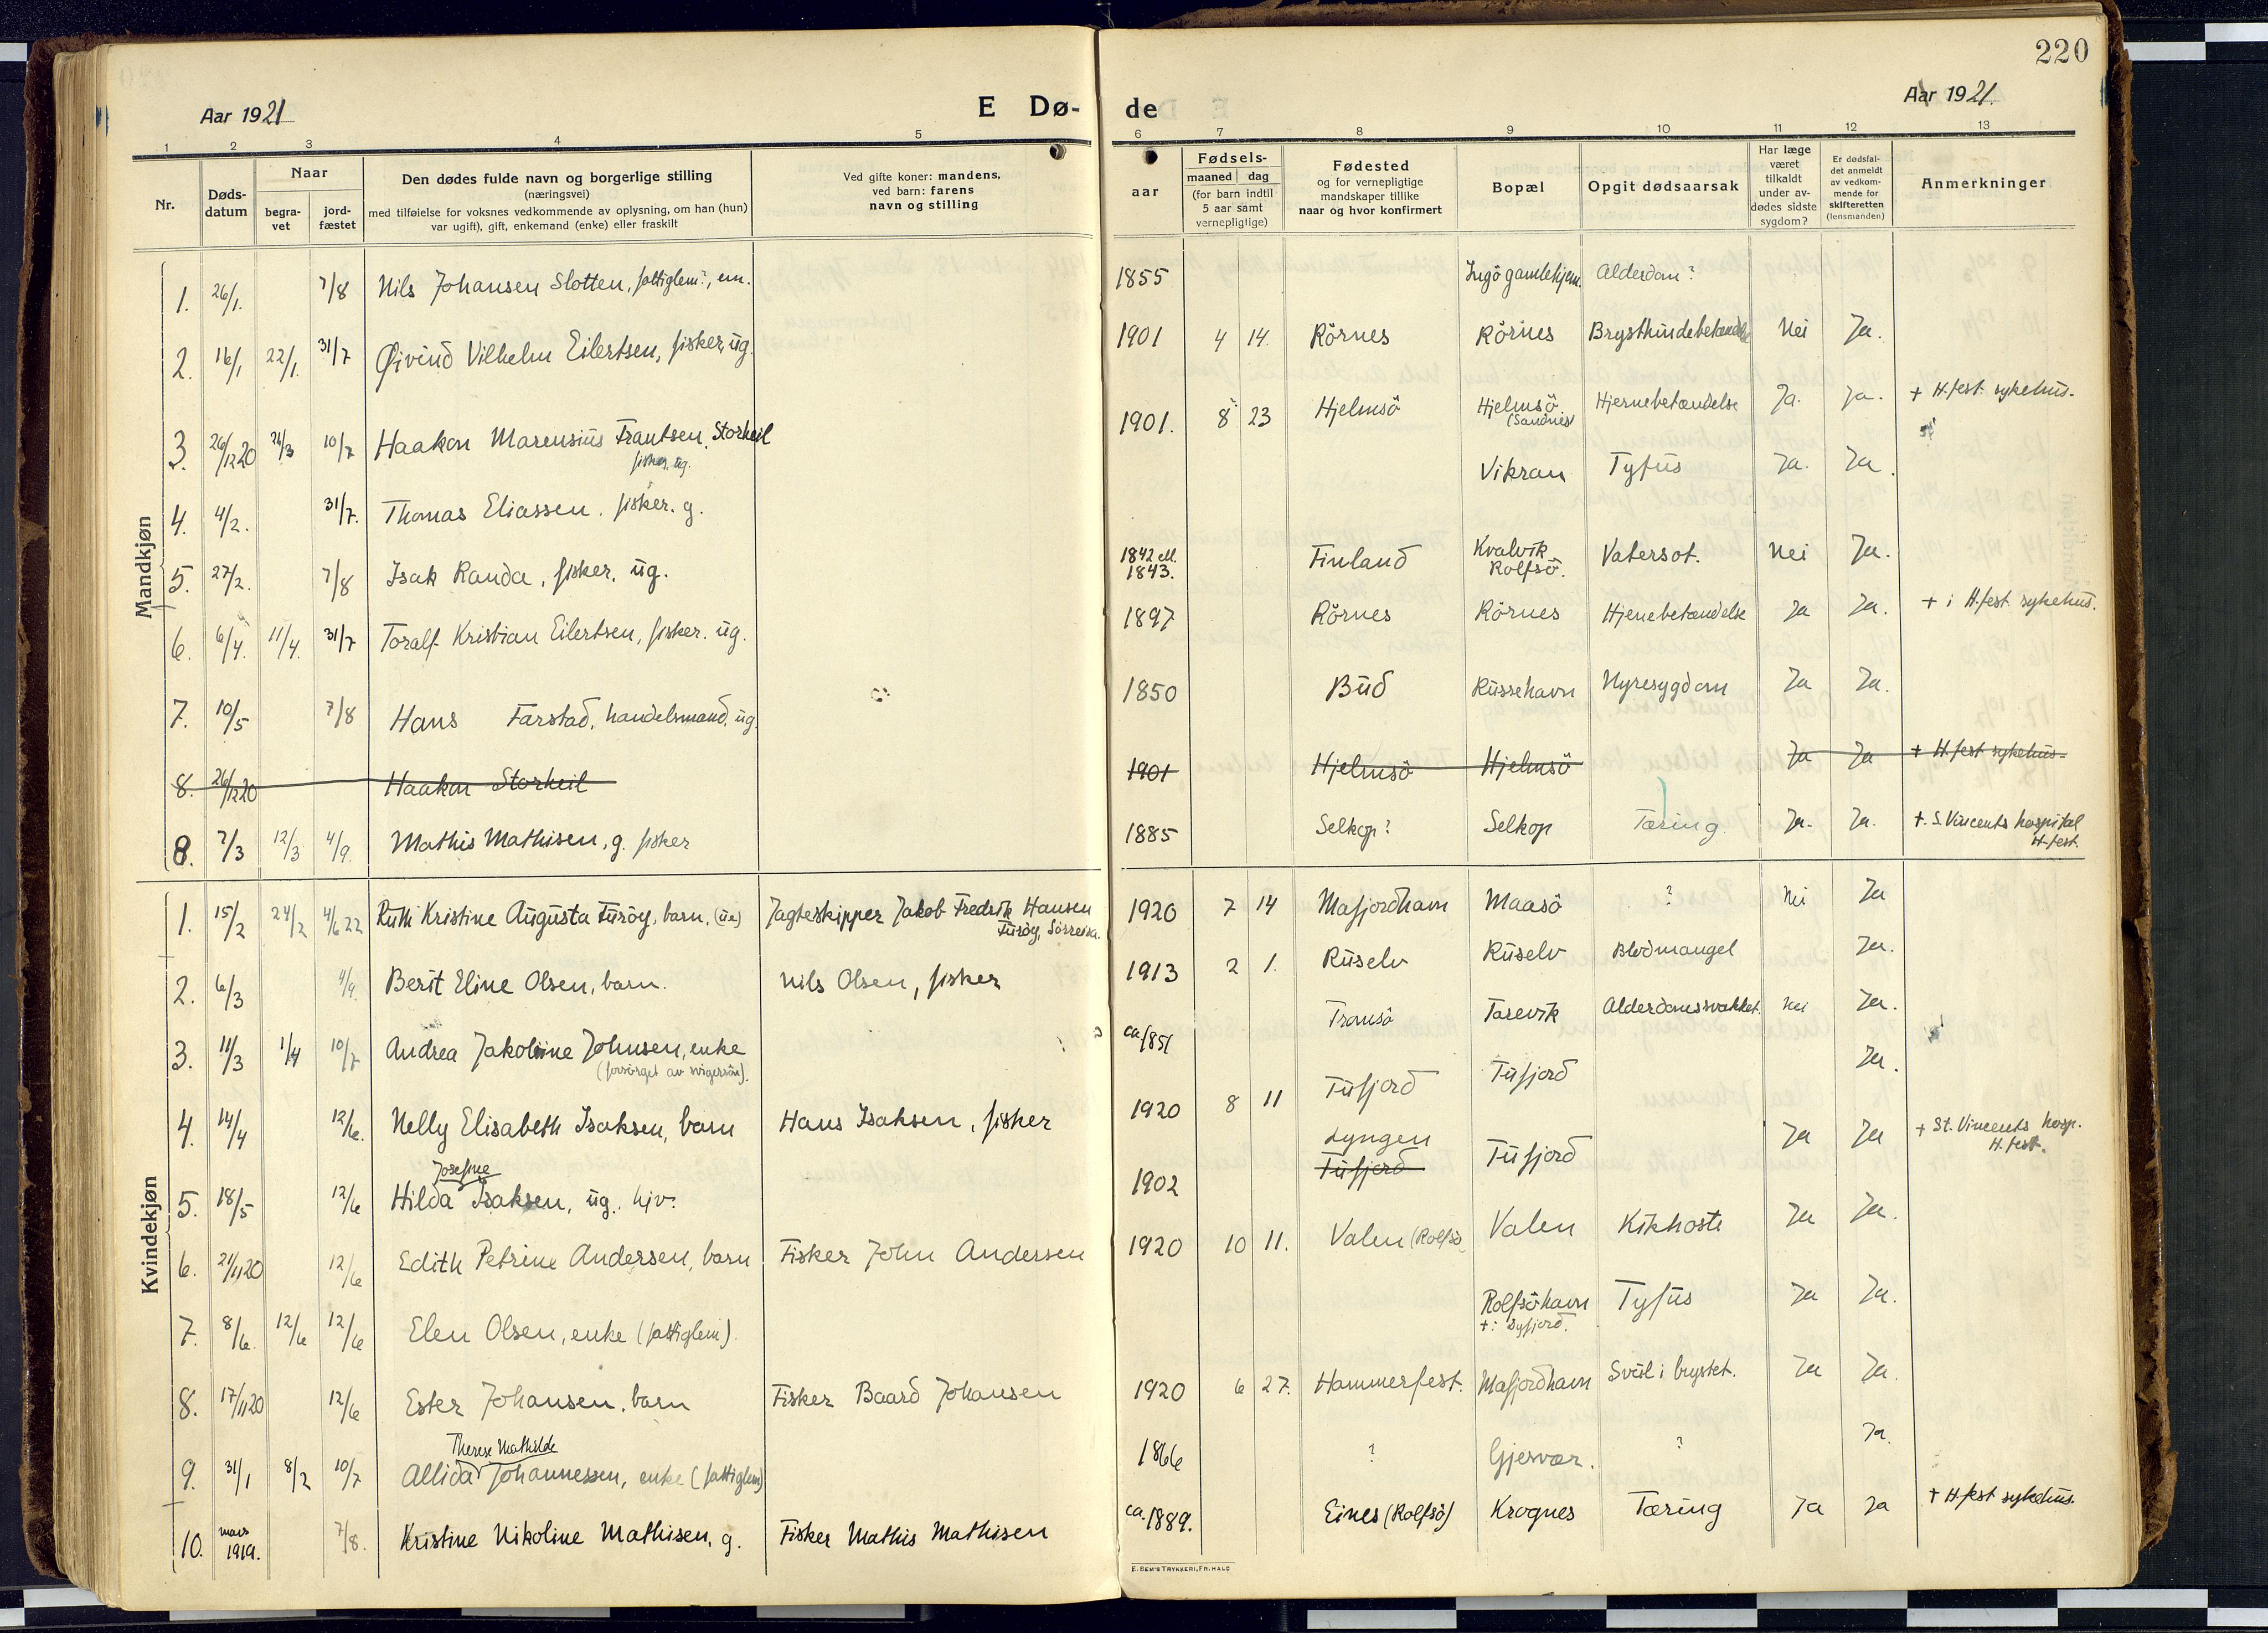 220
Aar 1921
E Dø-
de
Aar 1921.
1 2 3 4 5
6 7 8 9 10 11 12 13
Nr.
Døds-
datum
Naar
begra-
vet
jord-
fæstet
Den dødes fulde navn og borgerlige stilling
(næringsvei)
med tilføielse for voksnes vedkommende av oplysning, om han (hun)
var ugift), gift, enkemand (enke) eller fraskilt
Ved gifte koner: mandens,
ved barn: farens
navn og stilling
aar
Fødsels-
maaned dag
(for barn indtil
5 aar samt
vernepligtige)
Fødested
og for vernepligtige
mandskaper tillike
naar og hvor konfirmert
Bopæl
Opgit dødsaarsak
Har læge
været
tilkaldt
under av-
dødes sidste
sygdom?
Er dødsfal-
det anmeldt
av vedkom-
mende for
skifteretten
(lensmanden)
Anmerkninger
Mandkjøn
1. 26/1. 7/8 Nils Johansen Slotten, fattiglem?, em. 1855 Ingö gamlehjem. Alderdom?
2. 16/1 22/1. 31/7 Øivind Vilhelm Eilertsen, fisker, ug. 1901 4 14. Rörnes Rörnes Brysthindebetændelse Nei Ja.
3. 26/12 20 10/7 Haakon Marensius Frantsen Storheil 1901. 8 23 Hjelmsö Hjelmsö Hjernebetændelse Ja. Ja. + H.fest sykehus.
fisker, ug. (Sandnes)
4. 4/2. 31/7. Thomas Eliassen. fisker. g. Vikran Tyfus Ja. Ja.
5. 27/2. 7/8 Isak Randa, fisker, ug. 1842 ell. 1843. Finland Kvalvik Rolfsö. Vatersot. Nei Ja.
6. 6/4. 11/4. 31/7 Toralf Kristian Eilertsen, fisker. ug. 1897 Rörnes Rörnes Hjenebetændelse Ja Ja. + i H.fest sykehus.
7. 10/5 7/8 Hans Farstad, handelsmand, ug. 1850 Bud Russehavn Nyresygdom Ja Ja.
8. 26/12 20 Haakon Storheil 1901 Hjelmsö Hjelmsö Ja Ja + H.fest sykehus-
8. 7/3 12/3 4/9. Mathis Mathisen, g. fisker 1885 Selkop? Selkop Tæring. Ja. Ja. +. S. Vincents hospital
H.fest.
Kvindekjøn
1. 15/2 24/2 4/6 22 Ruth Kristine Augusta Furöy, barn, (ue) Jagteskipper Jakob Fredrik Hansen 1920 7 14 Mafjordhavn Maasö ? Nei Ja
Furöy, Sörreisa.
2. 6/3 4/9. Berit Eline Olsen, barn. Nils Olsen, fisker 1913 2 1. Ruselv Ruselv Blodmangel Ja.
3. 11/3 1/4 10/7 Andrea Jakobine Johnsen, enke ca 1851 Tromsö Tarevik Alderdomssvakhet. Nei Ja.
(forsörget av svigersön).
4. 14/4 12/6. Nelly Elisabeth Isaksen, barn Hans Isaksen, fisker 1920 8 11 Tufjord Tufjord Ja.
Josefine Lyngen
5. 18/5 12/6 Hilda Isaksen, ug. hjv. 1902 Tufjord Tufjord Ja Ja + St. Vincents hosp.
H.fest.
6. 21/11 20 12/6 Edith Petrine Andersen, barn Fisker John Andersen 1920 10 11. Valen (Rolfsö) Valen Kikhoste Ja Ja.
7. 8/6. 12/6 12/6 Elen Olsen, enke (fattiglem). Rolfsöhavn Tyfus Ja Ja.
8. 17/11 20 12/6 Ester Johansen, barn Fisker Baard Johansen 1920 6 27. Hammerfest. Mafjordhavn Svul i brystet. Ja Ja.
Therese Mathilde
9. 31/1 8/2 10/7 Allida Johannessen, enke (fattiglem) 1866 ? Gjesvær. ? Ja.
10. mars 1919. 7/8. Kristine Nikoline Mathisen, g. Fisker Mathis Mathisen ca. 1889. Eines (Rolfsö) Krognes Tæring Ja Ja + H.fest sykehus.
E. SEM'S TRYKKERI, FR.HALD